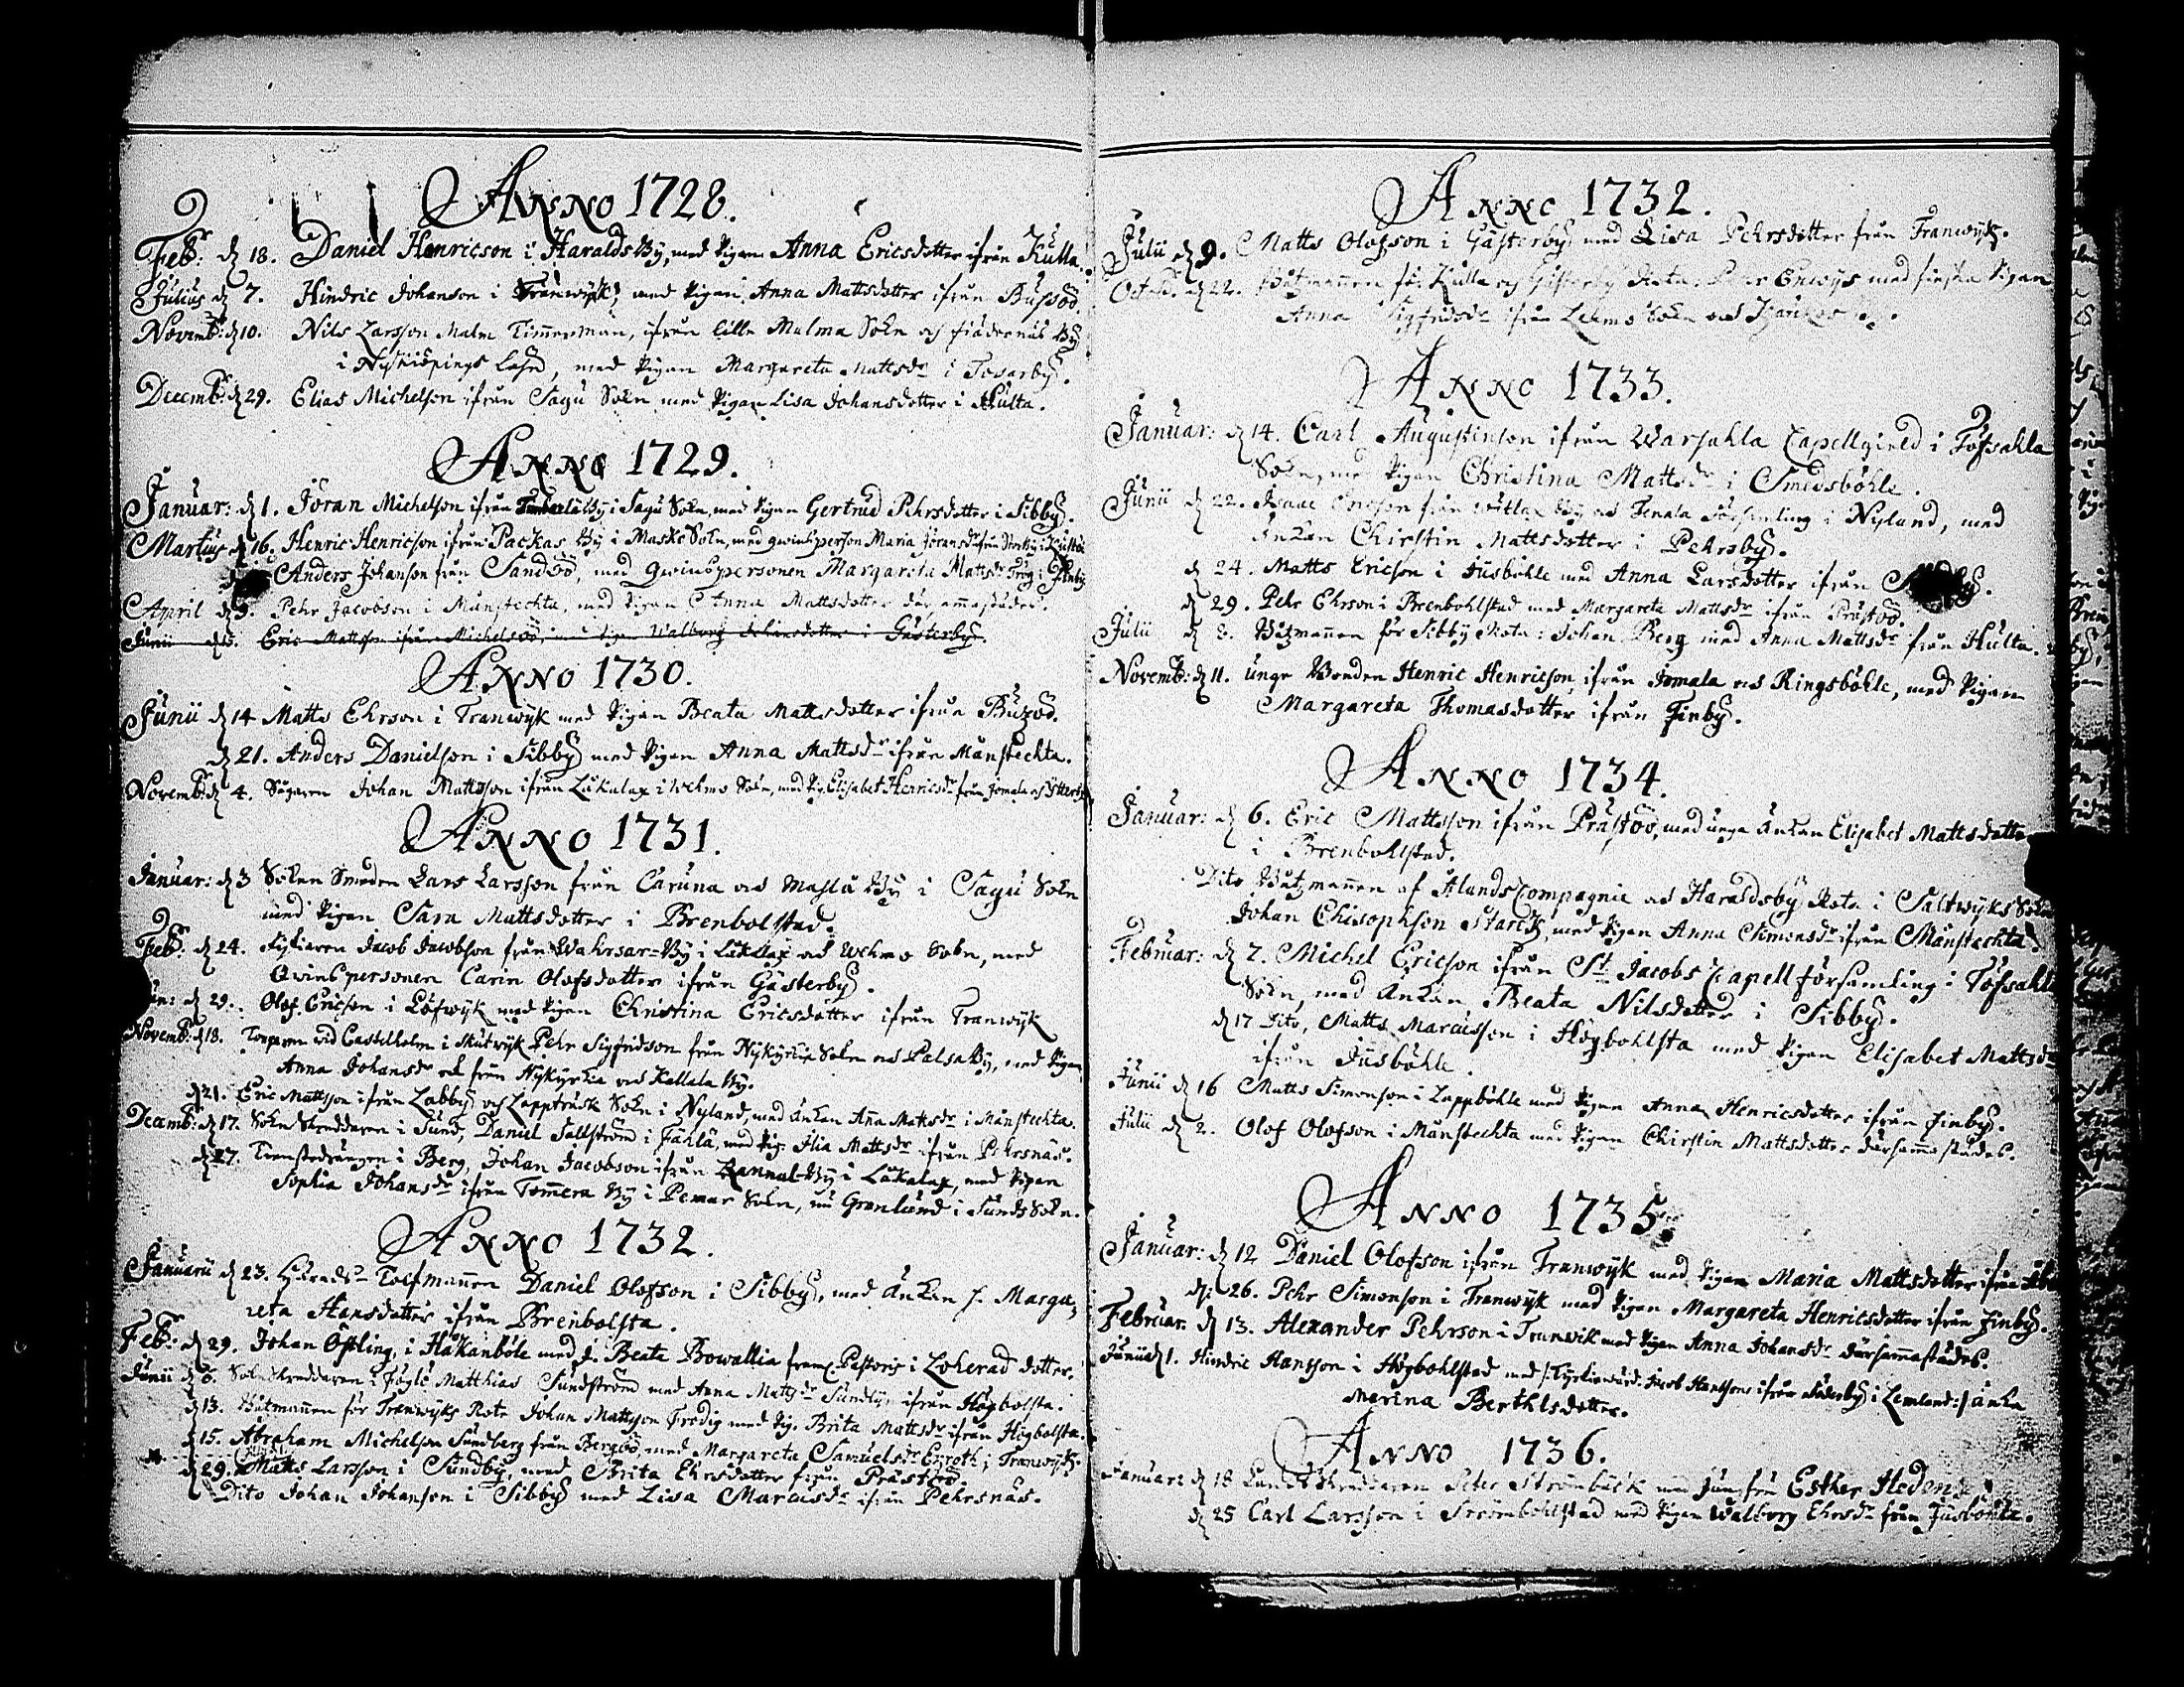 Anno 1728.
Feb: d 18. Daniel Henricson i Haralds By, med Pigan Anna Ericsdotter ifrån Kulla.
Julius d 7. Hindric Johanson i Tranwijk, med Pigan Anna Mattsdotter ifrån Bussöö.
Novemb: d 10. Nils Larsson Malm Timerman, ifrån Lilla Malma Sokn och By
i Nyköpings Lähn, med Pigan Margareta Mattsdr i Tosarby.
Decemb: d 29. Elias Michelson ifrån Sagu Sokn med Pigan Lisa Johansdotter i Hulta.
Anno 1729.
Januar: d 1. Jöran Michelson ifrån By i Sagu Sokn, med Pigan Gertrud Pehrsdotter i Sibby.
Martius d 16. Henric Henricson ifrån Packas By i Masko Sokn, med qwinsperson Maria Jöransdr från
Anders Johanson från Sandöö, med Qwinspersonen Margareta Mattsdr Frög i Finby
April d 9. Pehr Jacobson i Mångstechta, med Pigan Anna Mattsdotter där sammastädes.
Junii Eric Mattson ifrån Michelsöö, med Pigan Walborg Johansdotter i Gästerby.
Anno 1730.
Junii d 14 Matts Ehrson i Tranwijk med Pigan Beata Mattsdotter ifrån Buzöö.
d 21. Anders Danielson i Sibby med Pigan Anna Mattsdr ifrån Mångstechta.
Novemb: d 4. Sågaren Johan Mattsson ifrån Lukalax i Wehmo Sokn, med Pig. Elisabet Henricsdr från Jomala och Ytterby
Anno 1731.
Januar: d 3 Sokne Smeden Lars Larsson från Caruna och Masla By i Sagu Sokn
med Pigan Sara Mattsdotter i Brenbolstad.
Feb: d 24. Fiskaren Jacob Jacobson från Wahrsar-By i Lukalax och Wehmo Sokn, med
Qwinspersonen Carin Olofsdotter ifrån Gästerby.
Jun: d 29. Olof Ericson i Löfwijk med Pigan Christina Ericsdotter ifrån Tranwijk
Novemb: d 18. wid Castelholm i Slutwijk Pehr Sigfridson från Nykyrkia Sokn och Palsa By, med Pigan
Anna Johansdr och från Nykyrkia och Kallala By.
d 21. Eric Mattsson ifrån Labby och Lappträsk Sokn i Nyland, med Änkan Anna Mattsdr i Mångstechta.
Decemb: d 17. Sokne Skreddaren i Sund, Daniel Sallström i Tähla, med Pig. Hlia Mattsdr ifrån Pehrsnäs.
d 27. Tienstedrängen i Berg, Johan Jacobson ifrån Rannal-By i Lukalax, med Pigan
Sophia Johansdr ifrån Tomera By i Pemar Sokn, nu Grönlund i Sunds Sokn.
Anno 1732.
Januarii d 23. Härads-Tolfmannen Daniel Olofson i Sibby, med Änkan h. Marga,
reta Hansdotter ifrån Brenbolsta.
Feb: d 29. Johan Östling, i Håkanböle med J. Beata Bowallia frame Pastoris i Loherad dotter.
Junii d 6. Sokneskreddaren i Föglö Matthias Sundström med Anna Mattsdr Sundly, ifrån Högbolsta.
d 13. Båtzmannen för Tranwijks Rote Johan Mattson Frodig med Pig. Brita Mattsdr ifrån Högbolsta.
d 15. Abraham Michelson Sundberg från Bergöö, med Margareta Samuelsdr Enroth i Tranwijk.
d 29. Matts Larsson i Sundby, med Brita Ehrsdotter från Prästöö.
Dito Johan Johanson i Sibby med Lisa Marcusdr ifrån Pehrsnäs.
Anno 1732.
Julii d 9. Matts Olofson i Gästerby med Lisa Pehrsdotter från Tranwijk.
Octob. d 22. Båtzmannen för Kulla og Gästerby Rota: Pehr Enwijs med finska Pigan
Anna Sigfridsdr ifrån Lehmo Sokn och
Anno 1733.
Januar: d 14. Carl Augustinson ifrån Warsahla Capellgield i Töfsahla
Sokn, med Pigan Christina Mattsdr i Smedsböhle.
Junii d 22. Isaac Ericson från By och Tenala Församling i Nyland, med
Änkan Chirstin Mattsdotter i Pehrsby.
d 24. Matts Ericson i Jusböhle med Anna Larsdotter ifrån
d 29. Pehr Ehrson i Brenbohlstad med Margareta Mattsdr ifrån Prästöö.
Julii d 8. Båtzmannen för Sibby Rota: Johan Berg med Anna Mattsdr från Hulta.
Novemb: d 11. unge Bonden Henric Henricson ifrån Jomala och Ringsböhle, med Pigan
Margareta Thomasdotter ifrån Finby.
Anno 1734.
Januar: d 6. Eric Mattsson ifrån Prästöö, med unga Änkan Elisabet Mattsdotter
i Brenbolstad.
Dito Båtzmannen af Ålands Compagnie och Haraldsby Rota i Saltwijks Sokn
Johan Chisophson Starck, med Pigan Anna Simonsdr ifrån Mångstechta.
Februar: d 7. Michel Ericson ifrån St Jacobs Capell församling i Töfsahla
Sokn, med Änkan Beata Nilsdotter i Sibby.
d 17 Dito, Matts Marcusson i Högbohlsta med Pigan Elisabet Mattsdr
ifrån Jusböhle.
Junii d 16 Matts Simonson i Lappböhle med Pigan Anna Henricsdotter ifrån Finby.
Julii d 2. Olof Olofson i Mångstechta med Pigan Chirstin Mattsdotter därsammastädes.
Anno 1735.
Januar: d 12 Daniel Olofson ifrån Tranwijk med Pigan Maria Mattsdotter ifrån
d: 26. Pehr Simonson i Tranwijk med Pigan Margareta Henricsdotter ifrån Finby.
Februar: d 13. Alexander Pehrson i Tranvik med Pigan Anna Johansdr därsammastädes.
Junii d 1. Hindric Hansson i Högbohlstad med /:Kyrkiowärd: Jacob Hanssons ifrån Söderby i Lemland:/ änka
Marina Berthlsdotter.
Anno 1736.
Januar: d 18 Lands Skreddaren Peter Strömbäck med Jungfru Esther Hedenia
d 25 Carl Larsson i Strömbohlstad med Pigan Walborg Ehrsdr från Jusböhle.